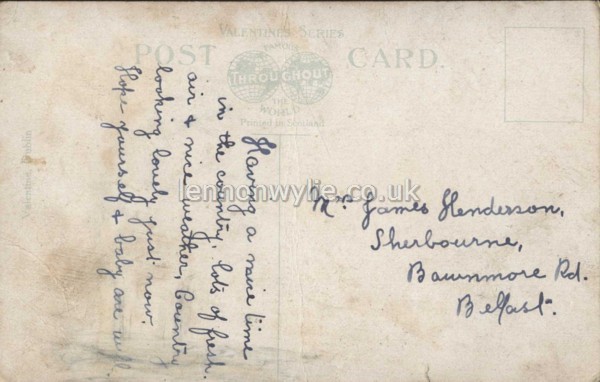 VALENTINE'S SERIES
POST CARD.
FAMOUS
THROUGHOUT
THE
WORLD
Printed in Scotland
Valentine, Dublin
lennonwylie.co.uk
Having a nice time
in the country, lots of fresh
air & nice weather, Country
looking lovely just now.
Hope yourself & baby are well
Mrs James Henderson,
Sherbourne,
Bawnmore Rd.
Belfast.